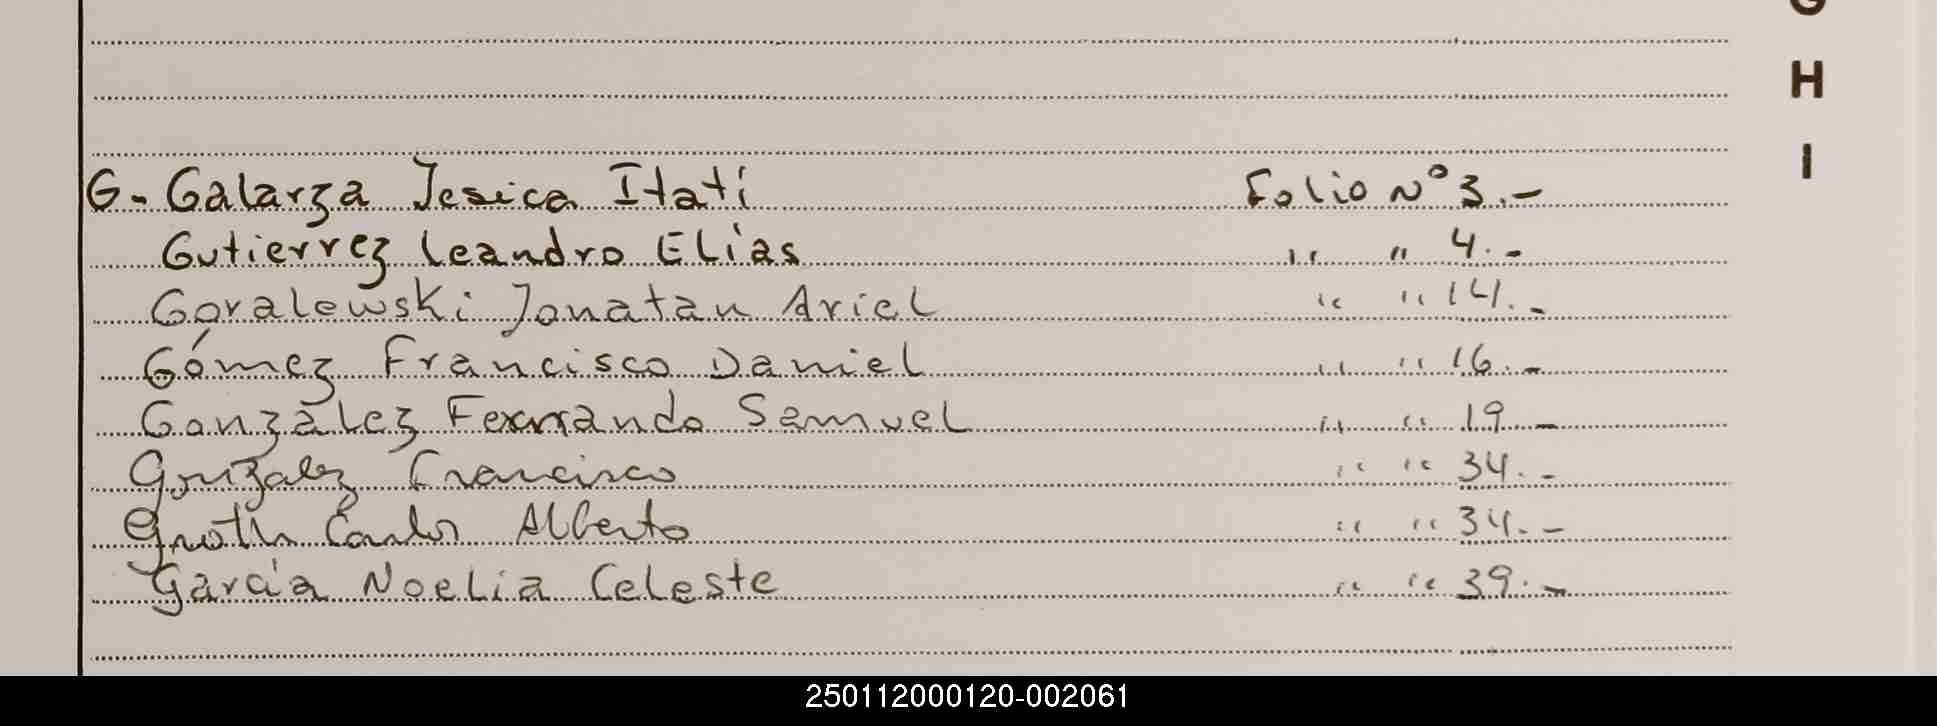 G
H
I
G. Galarza Jesica Itatí Folio Nº 3.-
Gutierrez Leandro Elias " " 4.-
Goralewski Jonatan Ariel " " 14.-
Gómez Francisco Daniel " " 16.-
González Fernando Samuel " " 19.-
Gonzalez Francisco " " 34.-
Groth Carlos Alberto " " 34.-
García Noelia Celeste " " 39.-
250112000120-002061